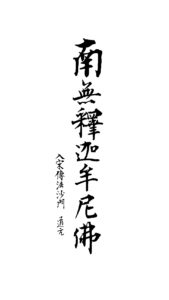 南無釋迦牟尼佛
入宋傳法沙門 道元